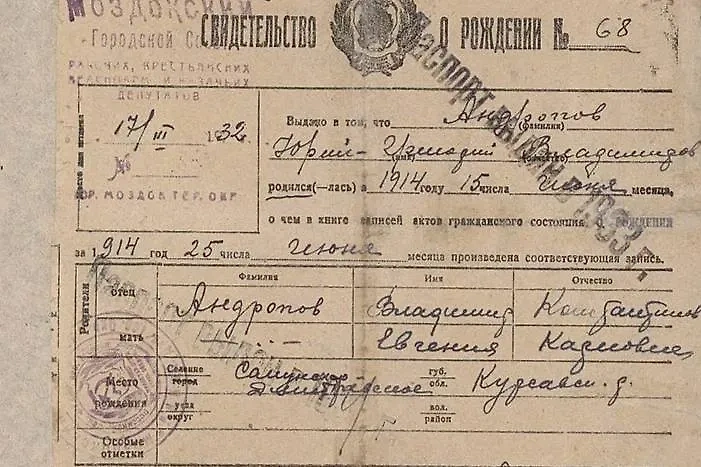 МОЗДОКСКИЙ
Городской
РАБОЧИХ, КРЕСТЬЯНСКИХ
ДЕПУТАТОВ
СВИДЕТЕЛЬСТВО О РОЖДЕНИИ № 68
17/III 1932
№
ГОР. МОЗДОК ТЕР. ОКР.
Паспорт выдан в 1933 г.
Выдано в том, что Андропов
(фамилия)
Юрий-Григорий Владимиров
(имя) (отчество)
родился(—лась) в 1914 году 15 числа Июня месяца,
о чем в книге записей актов гражданского состояния о рождении
за 1914 год 25 числа Июня месяца произведена соответствующая запись.
Родители
Фамилия Имя Отчество
отец Андропов Владимир Константинов
мать Евгения Карловна
Место рождения
Селение город губ. обл. Курсавск. р.
уезд округ вол. район
Особые отметки